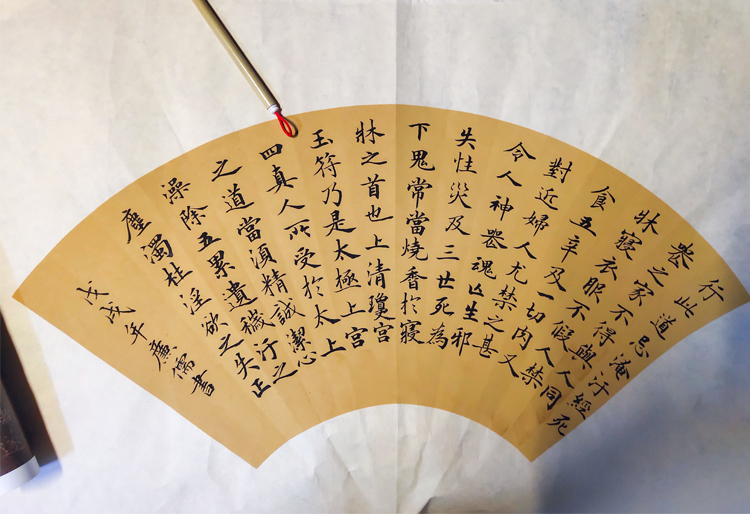 行此道忌淹汙經死
喪之家不得與人同
牀寢衣服不假人禁
食五辛及一切肉又
對近婦人尤禁之甚
令人神喪魂亡生邪
失性災及三世死為
下鬼常當燒香於寢
牀之首也上清瓊宮
玉符乃是太極上宮
四真人所受於太上
之道當湏精誠潔心
澡除五累遺穢汙之
塵濁杜淫欲之失正
戊戌年廉儒書